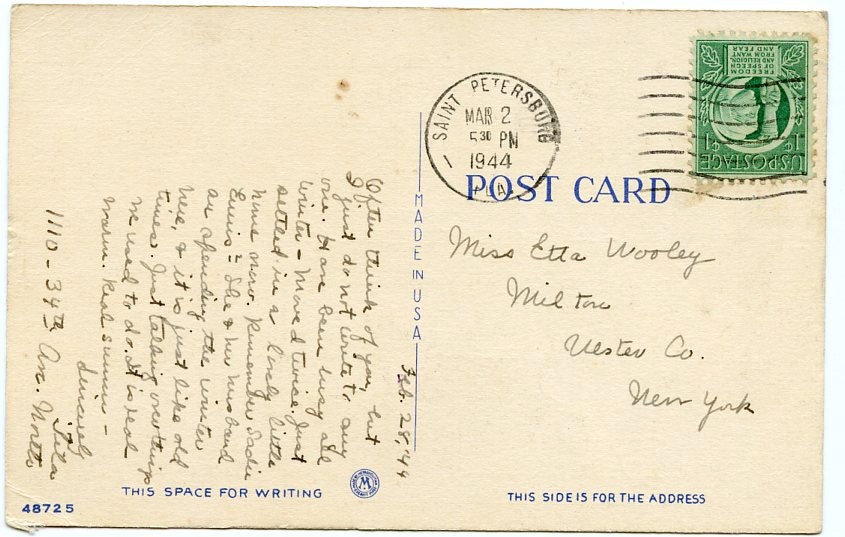 SAINT PETERSBURG
MAR 2
5 30 PM
1944
FLA.
FREEDOM
OF SPEECH
AND RELIGION,
FROM WANT
AND FEAR
1¢ 1¢
U.S. POSTAGE
POST CARD
MADE IN USA
Miss Etta Wooley
Milton
Ulster Co.
New York
Feb. 28, '44
Often think of you, but
I just do not write to any
one. Have been busy all
winter - Moved twice. Just
settled in a lovely little
home now. Remember Sadie
She & her husband
are spending the winter
here, & it is just like old
times. Just talking over things
we used to do. It is real
warm. Real summer -
Sincerely
1110 - 34th Av. North
M
THIS SPACE FOR WRITING
THIS SIDE IS FOR THE ADDRESS
48725